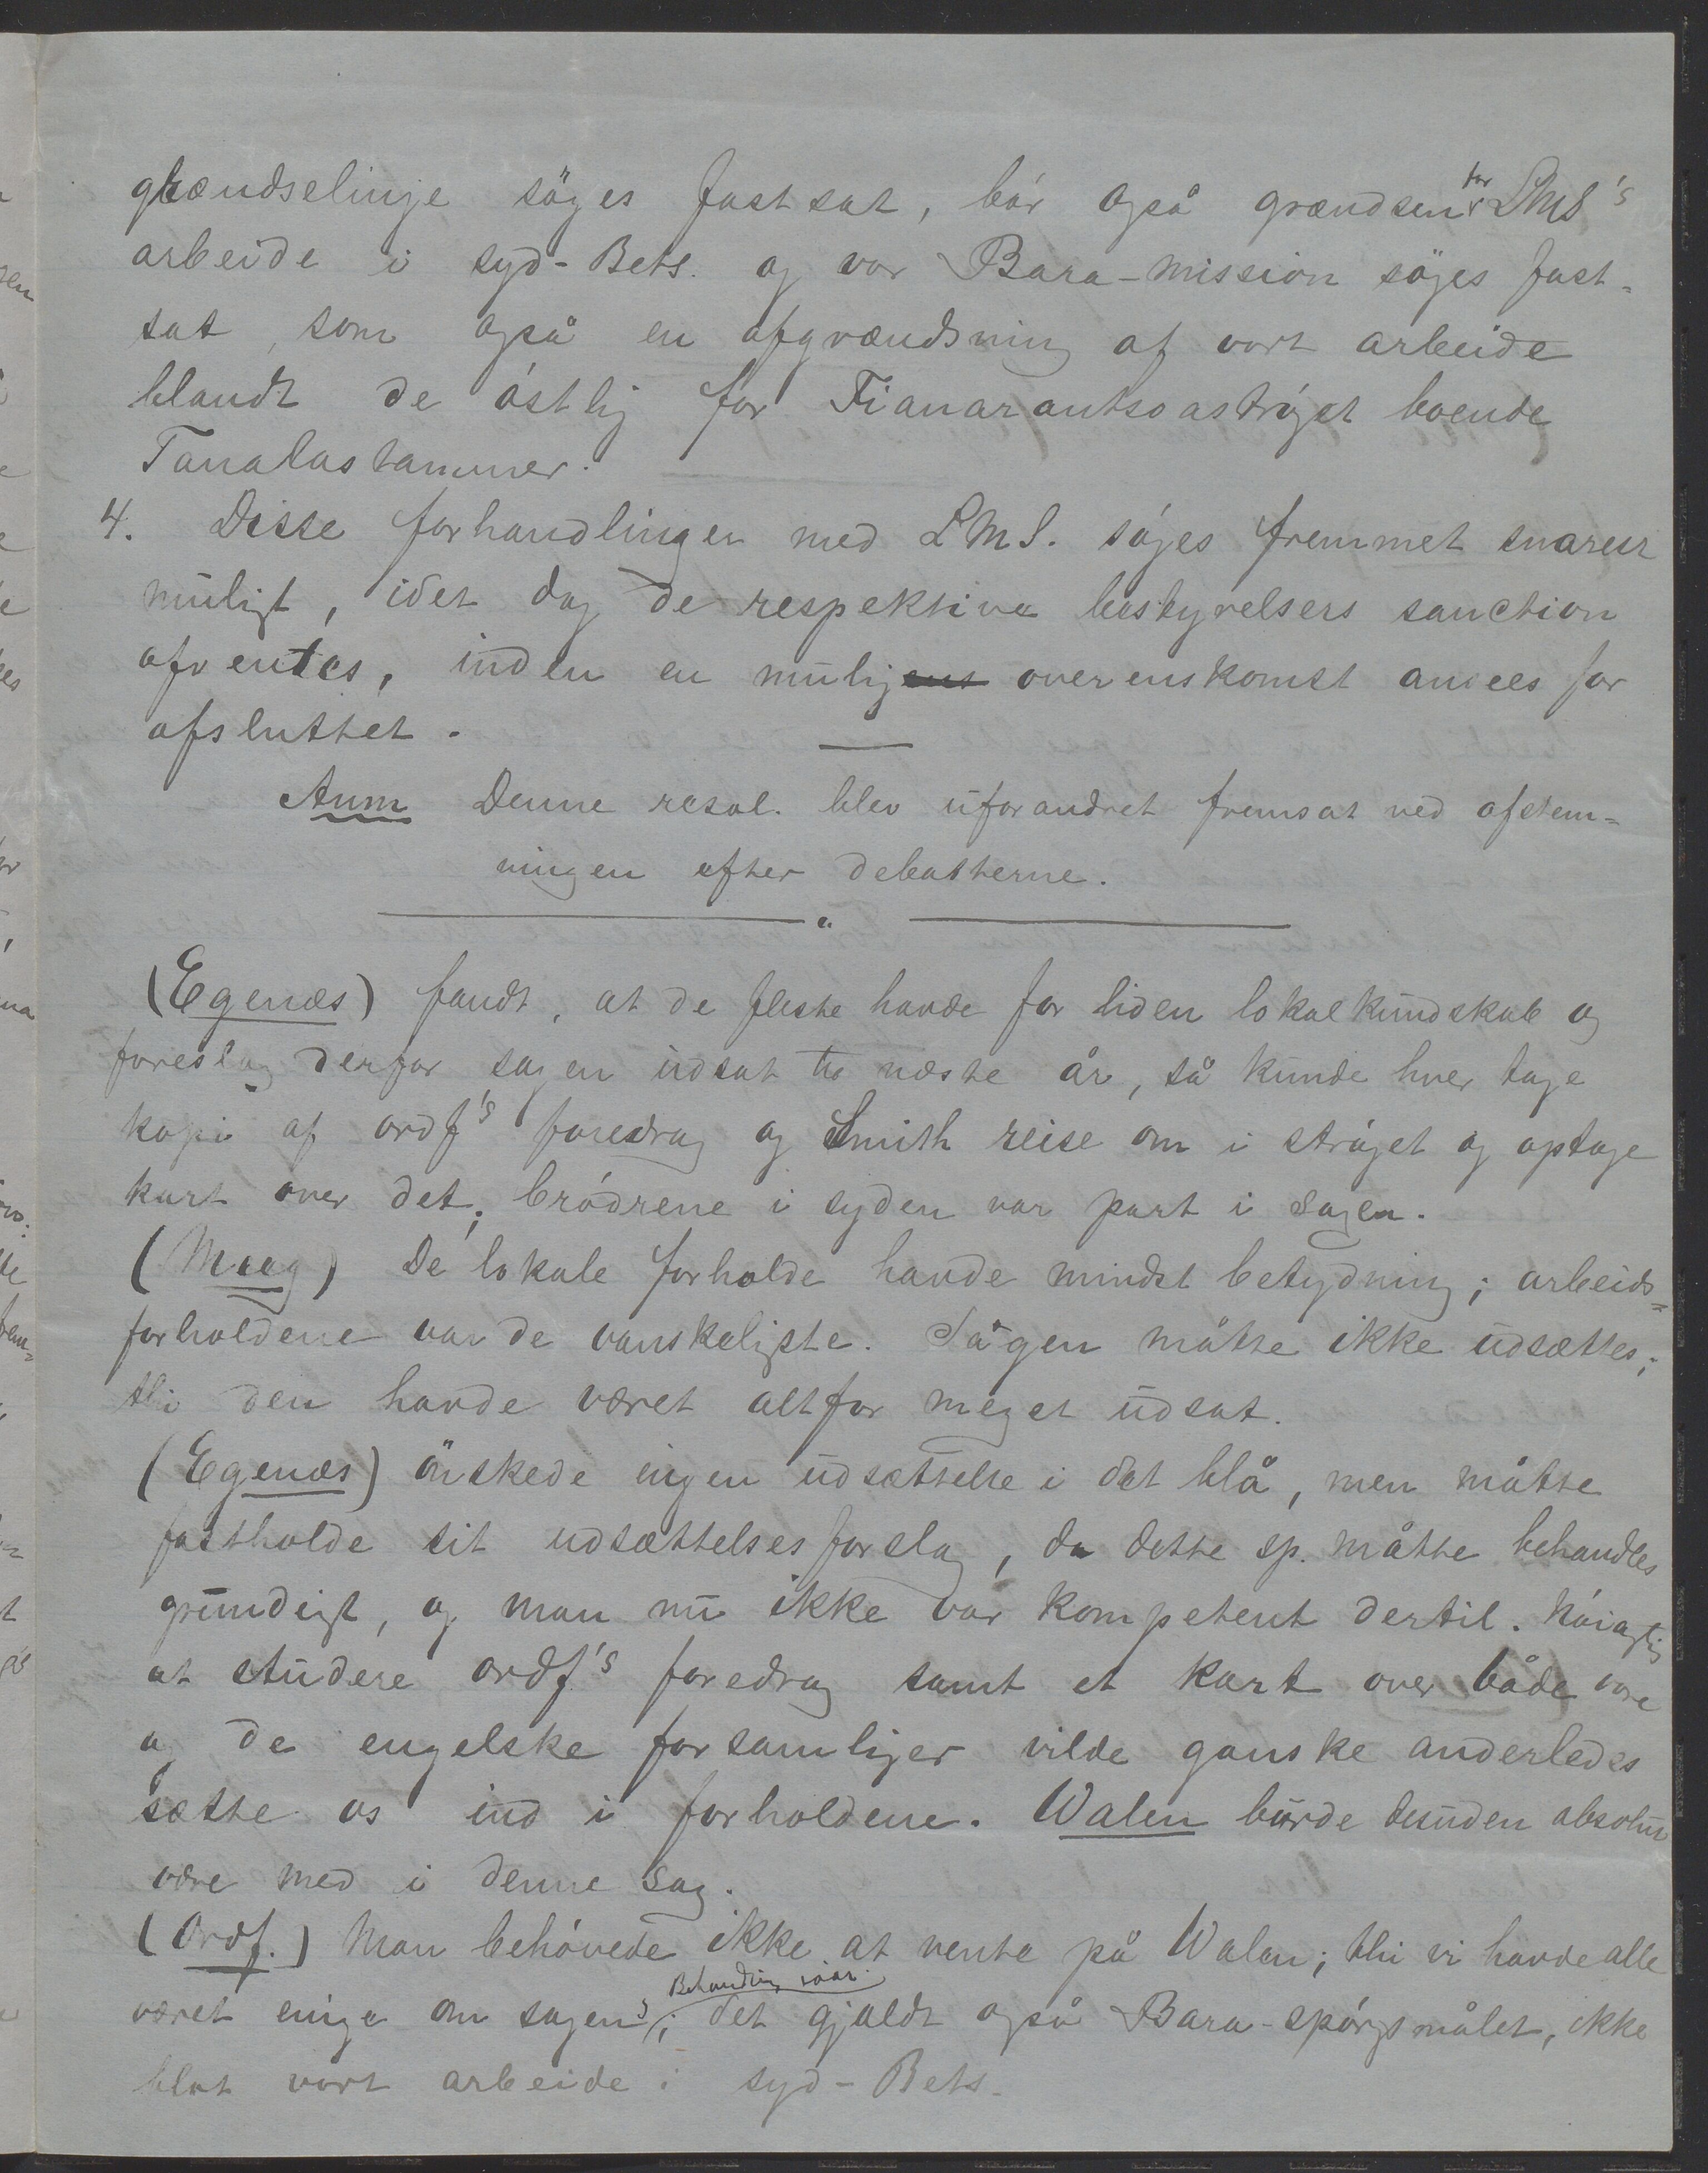 grændselinje søges fastsat, bør også grændsen for LMS's
arbeide i syd-Bets. og vor Bara-mission søges fast-
sat, som også en afgrændsning af vort arbeide
blandt de østlig for Fianarantsoastrøget boende
Tanalastammer.
4. Disse forhandlinger med LMS. søges fremmet snarest
muligt, idet dog de respektive bestyrelsers sanction
afventes, inden en mulig overenskomst ansees for
afsluttet.
Anm Denne resol. blev uforandret fremsat ved afstem-
ningen efter debatterne.
(Egenæs) fandt, at de fleste havde for liden lokalkundskab og
foreslog derfor sagen udsat til næste år, så kunde hver tage
kopi af ordf's foredrag og Smith reise om i strøget og optage
kart over det; brødrene i syden var part i sagen.
(Meeg) De lokale forholde havde mindst betydning; arbeids-
forholdene var de vanskeligste. Sagen måtte ikke udsættes;
thi den havde været altfor meget udsat.
(Egenæs) ønskede ingen udsættelse i det blå, men måtte
fastholde sit udsættelsesforslag, da dette sp. måtte behandles
grundigt, og man nu ikke var kompetent dertil. Nøiagtig
at studere ordf's foredrag samt et kart over både vore
og de engelske forsamliger vilde ganske anderledes
sætte os ind i forholdene. Walen burde desuden absolut
være med i denne sag.
(Ordf.) Man behøvede ikke at vente på Walen; thi vi havde alle
været enige om sagens Behandling iaar; det gjaldt også Bara-spørgsmålet, ikke
blot vort arbeide i syd-Bets.